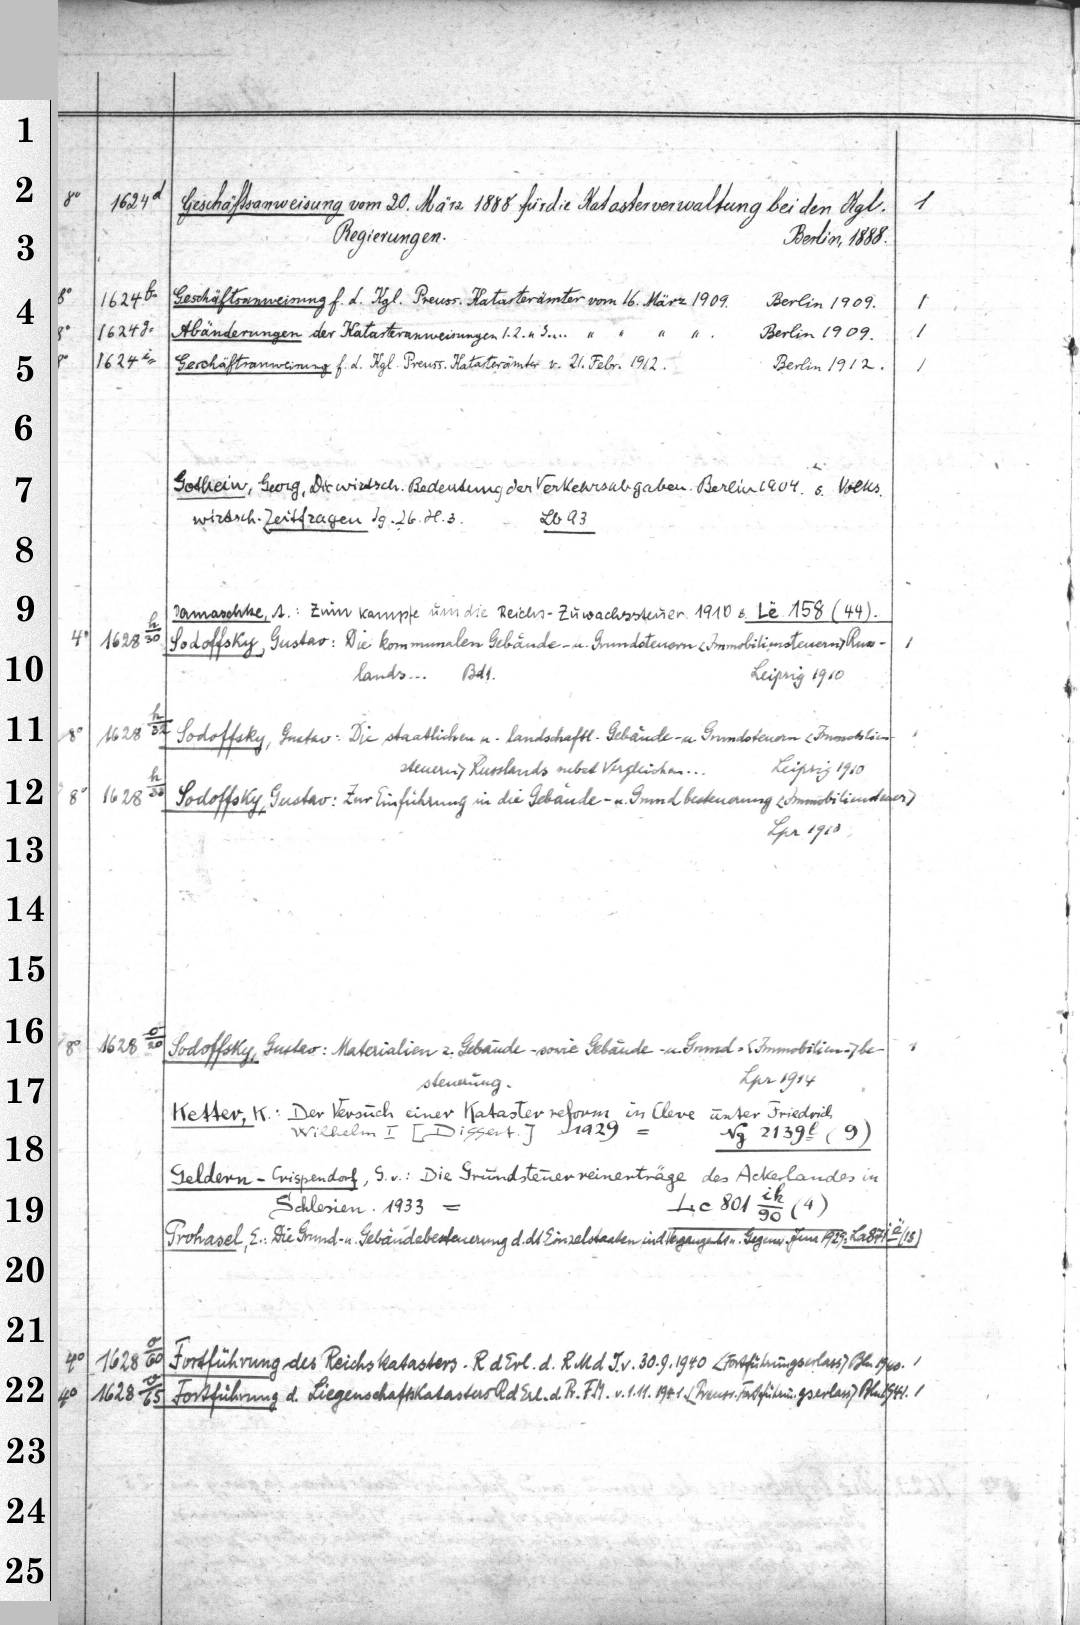 1
2
8° 1624d Geschäftsanweisung vom 20. März 1888 für die Katasterverwaltung bei den Kgl. 1
Regierungen. Berlin, 1888.
3
4
8° 1624 Geschäftsanweisung f. d. Kgl. Preuss. Katasterämter vom 16. März 1909. Berlin 1909. 1
8° 1624g. Abänderungen der Katasteranweisungen 1. 2. u 3.... " " " " . Berlin 1909. 1
5
8° 1624 Geschäftsanweisung f. d. Kgl. Preuss. Katasterämter v. 21. Febr. 1912. Berlin 1912. 1
6
7
Gothein, Georg, Die wirtsch. Bedeutung der Verkehrsabgaben. Berlin 1904. s. Volks.
wirtsch. Zeitfragen Jg. 26. H. 3. Lb 93
8
9
Damaschke, A.: Zum Kampfe um die Reichs-Zuwachssteuer. 1910 s. Lë 158 (44).
4° 1628 h/30 Sodoffsky, Gustav: Die kommunalen Gebäude- u. Grundsteuern <Immobiliensteuern> Russ- 1
10
lands... Bd 1. Leipzig 1910
11
8° 1628 h/32 Sodoffsky, Gustav: Die staatlichen u. landschaftl. Gebäude- u Grundsteuern <Immobilien- 1
steuern> Russlands nebst Vergleichen... Leipzig 1910
12
8° 1628 h/ Sodoffsky, Gustav: Zur Einführung in die Gebäude- u. Grundbesteuerung <Immobiliensteuer>
Lpz 1910.
13
14
15
16
8° 1628 o/20 Sodoffsky, Gustav: Materialien z. Gebäude- sowie Gebäude- u. Grund- <Immobilien-> be- 1
steuerung. Lpz 1914
17
Ketter, K.: Der Versuch einer Katasterreform in Cleve unter Friedrich
Wilhelm I [Dissert.] 1929 = Ng 2139 (9)
18
Geldern-Crispendorf, G. v.: Die Grundsteuerreinerträge des Ackerlandes in
19
Schlesien. 1933 = Lc 801 ik/90 (4)
Prohasel, E.: Die Grund- u. Gebäudebesteuerung d. dt Einzelstaaten in d Vergangenh. u. Gegenw. Jena 1929: La 871 (18)
20
21
4° 1628 o/60 Fortführung des Reichskatasters. R d Erl. d. R M d I. v. 30.9.1940 <Fortführungserlass> Bln 1940. 1
22
4° 1628 o/65 Fortführung d. Liegenschaftskatasters R d Erl. d. Pr. F M. v. 1.11. 1941 <Preuss. Fortführungserlass> Bln 1941. 1
23
24
25